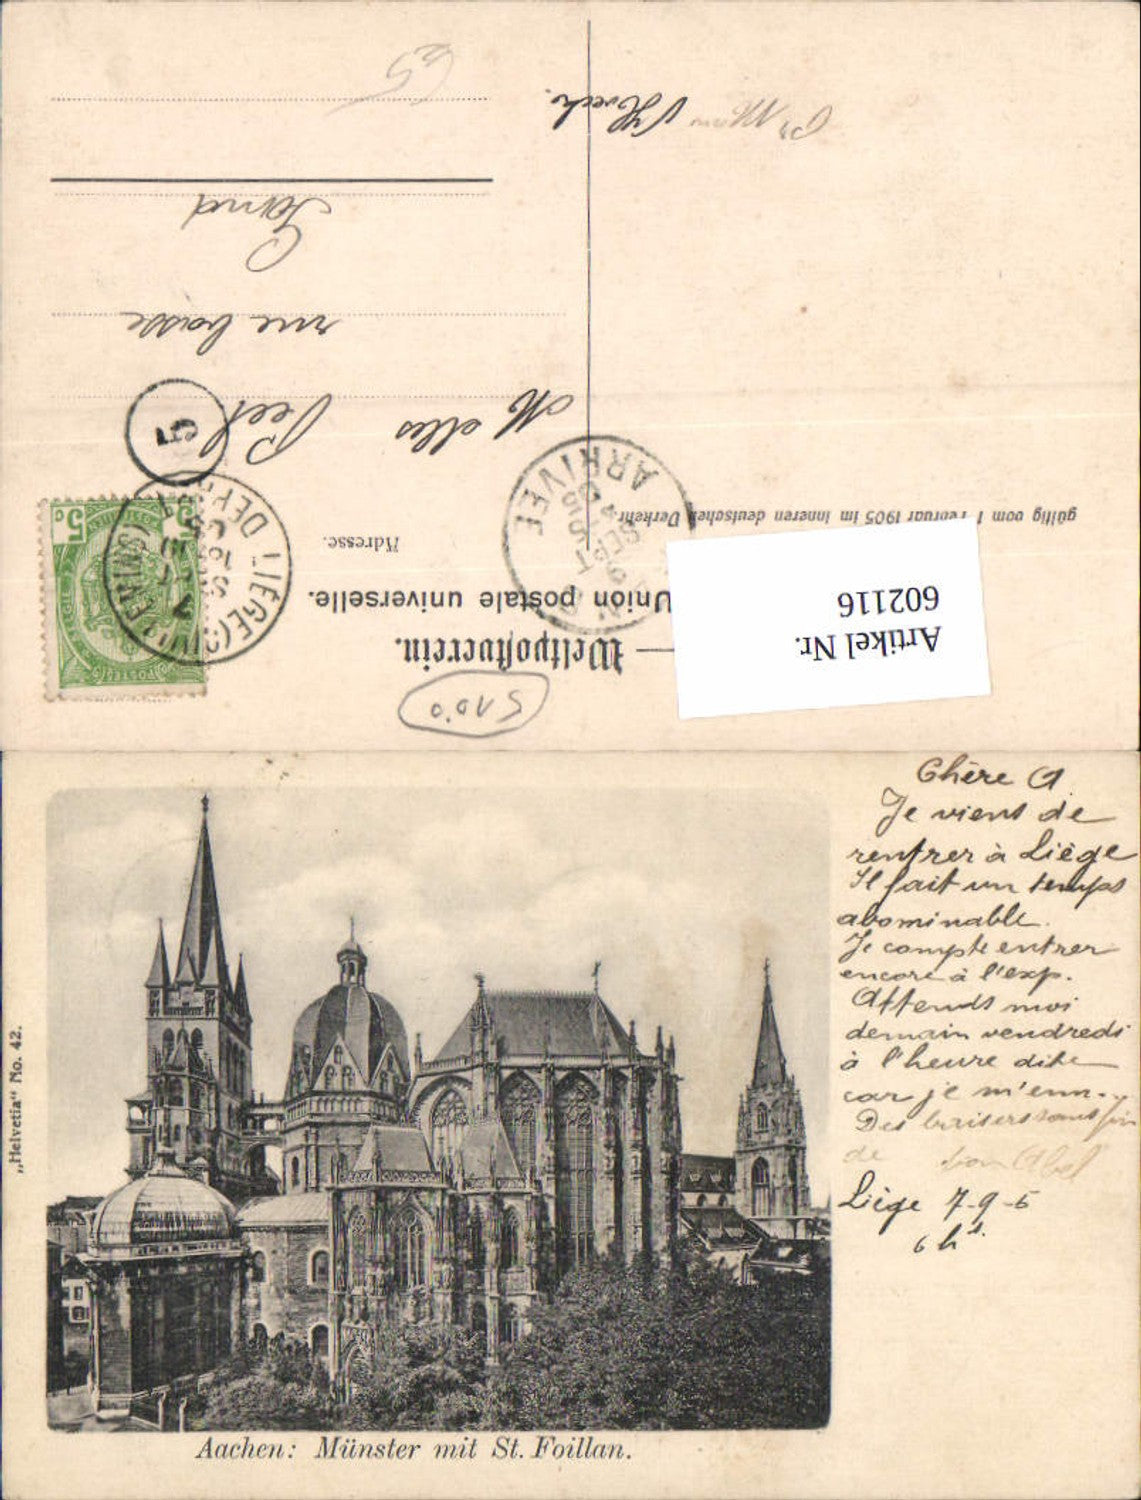 Artikel Nr.
602116
Weltpostverein.
Union postale universelle.
Adresse.
gültig vom 1 Februar 1905 im inneren deutschen Verkehr.
5 c
POSTES
LIÈGE (GUILLEMINS)
DEPART
ARRIVEE
SEPT
M elles Peel
rue basse
Gand
Chère A
Je viens de
rentrer à Liège
Il fait un temps
abominable.
Je compte entrer
encore à l'exp.
Attends moi
demain vendredi
à l'heure dite
car je m'enn..
Des baisers sans fin
de ton Abel
Liège 7-9-5
6 h
„Helvetia“ No. 42.
Aachen: Münster mit St. Foillan.